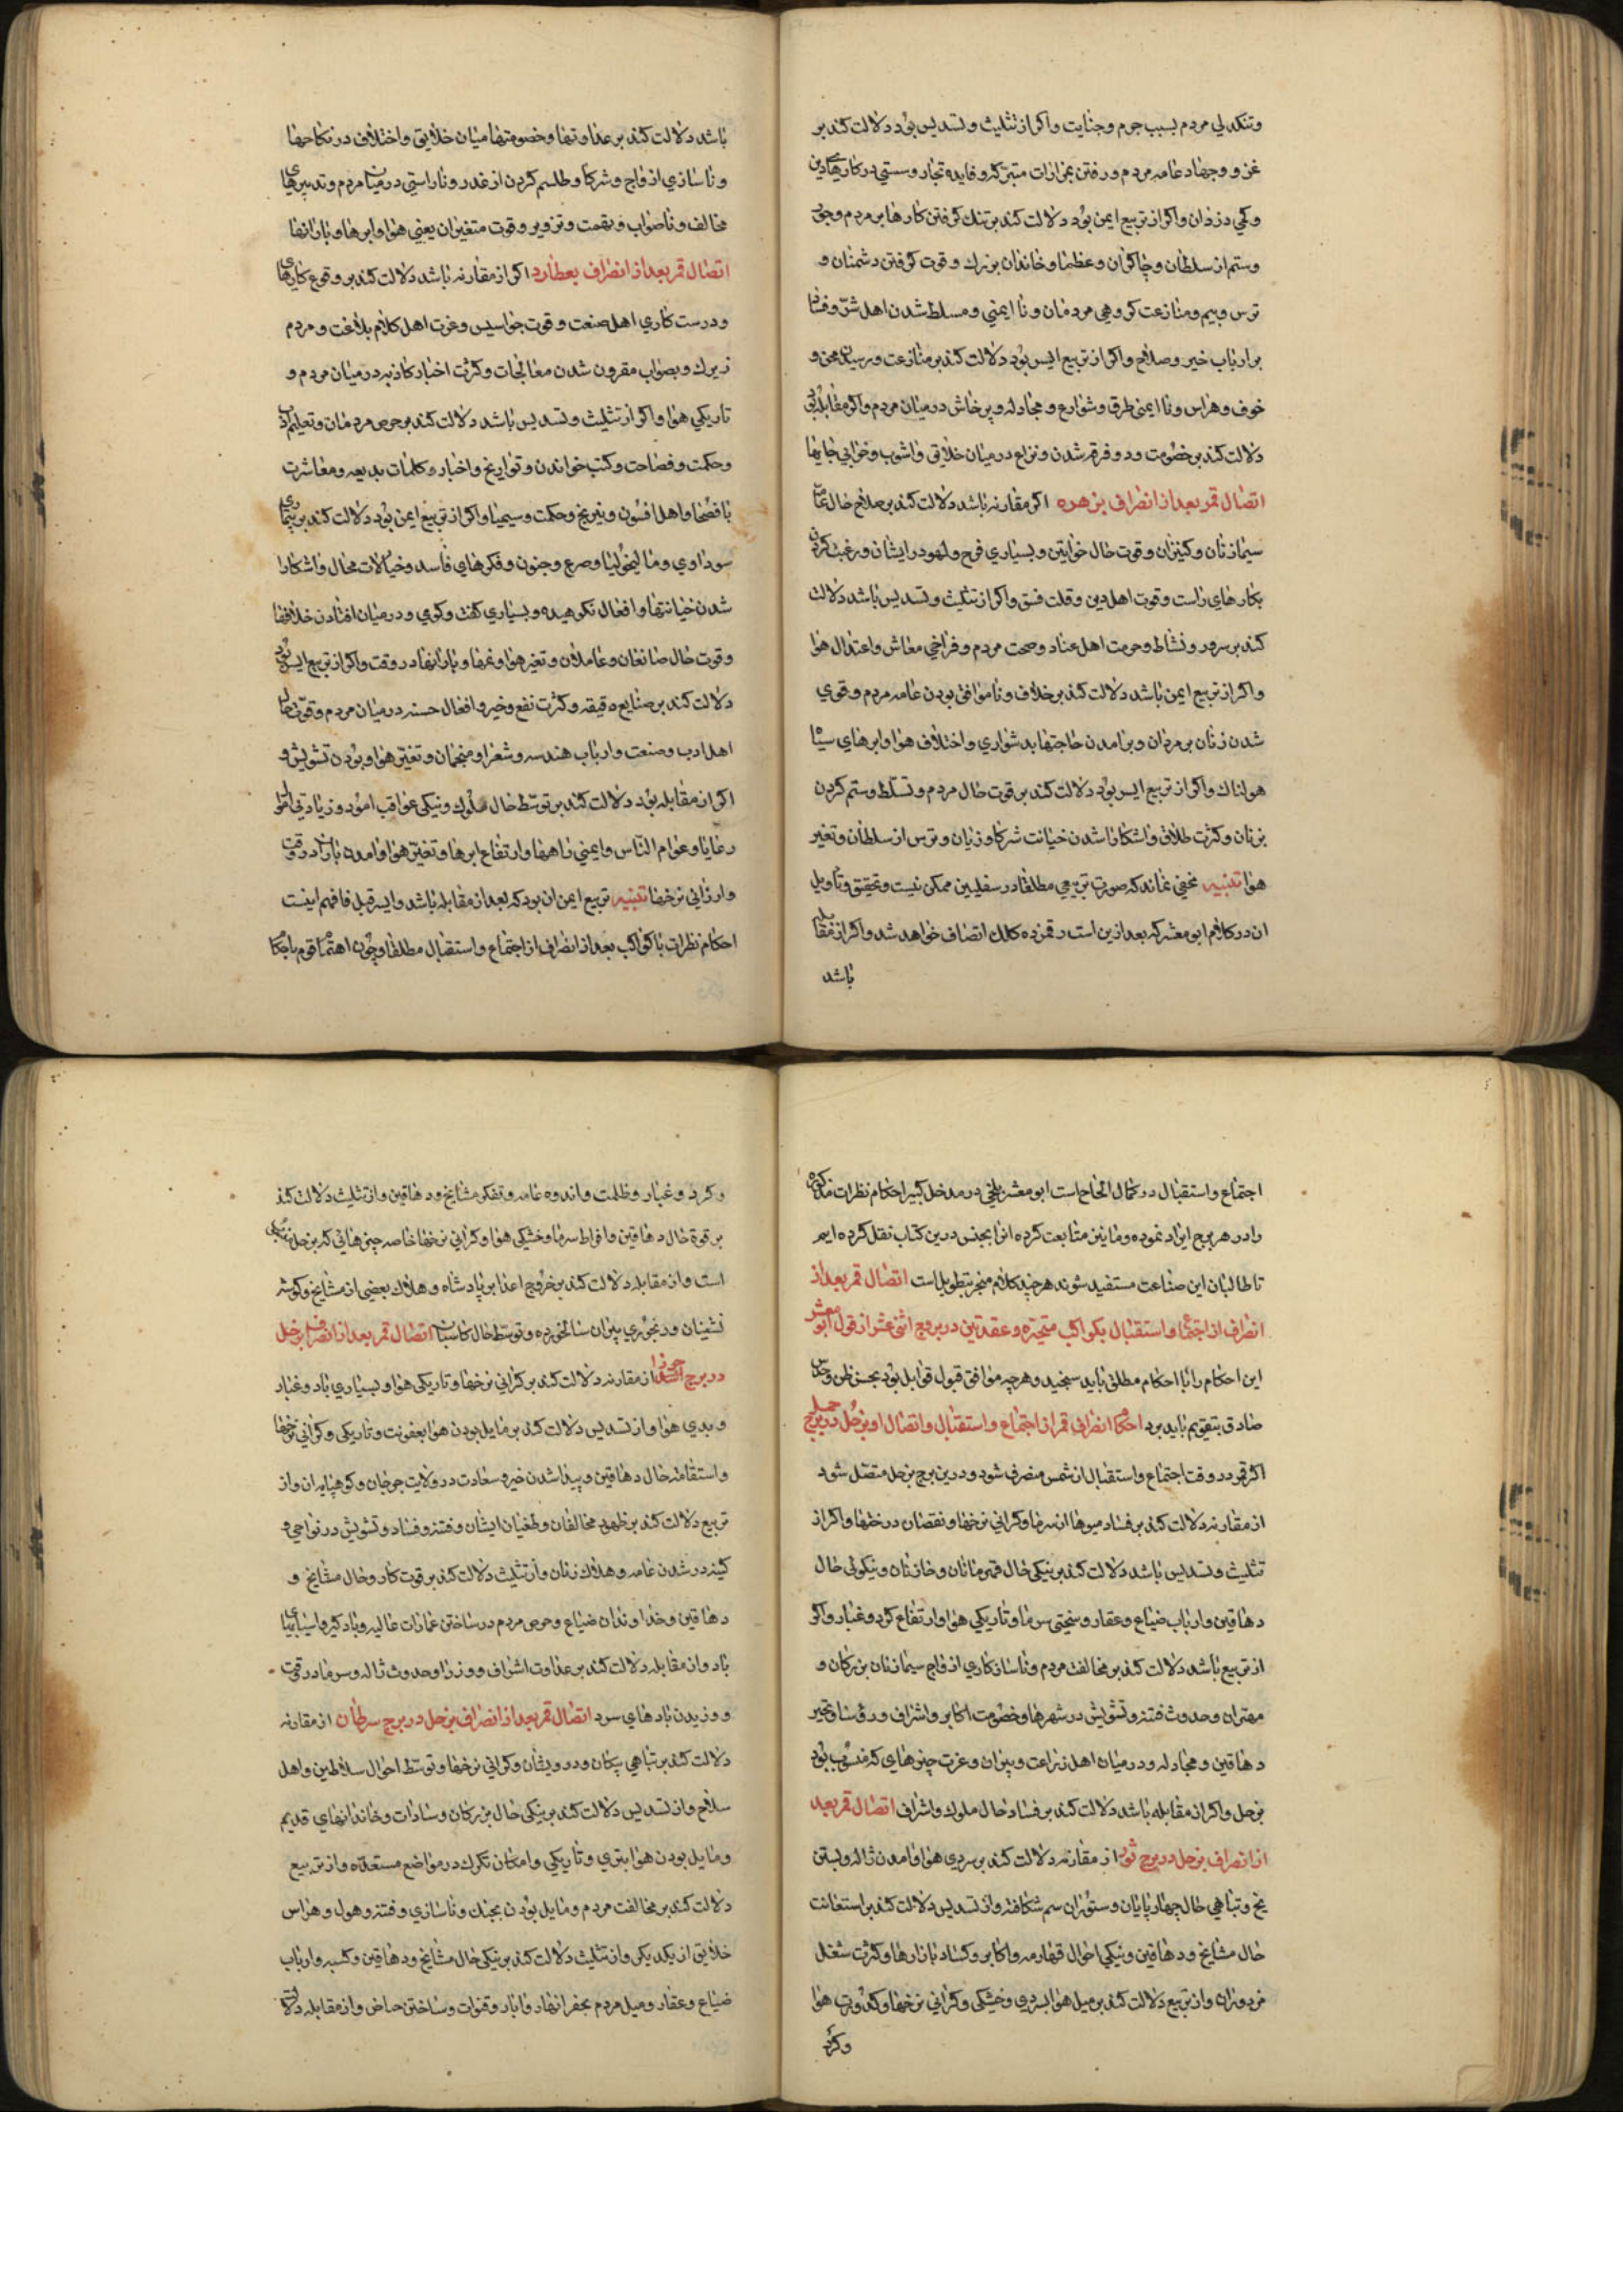 وتنکدلی مردم بسبب جرم وجنایت واکر از تثلیث وتسدیس بود دلالت کند بر
غزو وجهاد عامه مردم ورفتن بمزارات متبرکه وفایده تجار وسستی در کارهای دین
وکمی دزدان واکر از تربیع ایمن بود دلالت کند بر تنک کرفتن کارها بر مردم وجور
وستم از سلطان وچاکران وعظما وخاندان بزرک وقوت کرفتن دشمنان و
ترس وبیم ومنازعت کروهی مردمان ونا ایمنی ومسلط شدن اهل شر وفساد
بر ارباب خیر وصلاح واکر از تربیع ایسر بود دلالت کند بر منازعت ورسیدن محن و
خوف وهراس ونا ایمنی طرق وشوارع ومجادله وپرخاش در میان مردم واکر مقابله بود
دلالت کند بر خصومت ودو فرقه شدن ونزاع در میان خلایق واشوب وخرابی جایها
اتصال قمر بعد از انصراف بزهره اکر مقارنه باشد دلالت کند بر صلاح حال عامه
سیما زنان وکنیزان وقوت حال خواتین وبسیاری فرح ولهو در ایشان ورغبت کردن
بکارهای راست وقوت اهل دین وقلت فسق واکر از تثلیث وتسدیس باشد دلالت
کند بر سرور ونشاط وحرمت اهل عناد وصحت مردم وفراخی معاش واعتدال هوا
واکر از تربیع ایمن باشد دلالت کند بر خلاف وناموافق بودن عامه مردم وقوی
شدن زنان بر مردان وبرامدن حاجتها بدشواری واختلاف هوا وابرهای سیاه
هولناک واکر از تربیع ایسر بود دلالت کند بر قوت حال مردم وتسلط وستم کردن
بزنان وکثرت طلاق واشکارا شدن خیانت شرکا وزیان وترس از سلطان وتغیر
هوا تنبیه مخفی نماند که صورت تربیعی مطلقا در سفلیین ممکن نیست وتحقیق وتاویل
ان در کلام ابو معشر که بعد ازین است رقمزده کلک اتصاف خواهد شد واکر از مقابله
باشد
باشد دلالت کند بر عداوتها وخصومتها میان خلایق واختلاف در نکاحها
وناسازی ازواج وشرکا وطلسم کردن از غدر وناراستی در میان مردم وتدبیرهای
مخالف وناصواب وتهمت وتزویر وقوت متغیران یعنی هوا وابرها وبارانها
اتصال قمر بعد از انصراف بعطارد اکر از مقارنه باشد دلالت کند بر وقوع کارهای
ودرست کاری اهل صنعت وقوت جواسیس وعزت اهل کلام بلاغت ومردم
زیرک وبصواب مقرون شدن معالجات وکثرت اخبار کاذبه در میان مردم و
تاریکی هوا واکر از تثلیث وتسدیس باشد دلالت کند بر حرص مردمان وتعلیم ادب
وحکمت وفصاحت وکتب خواندن وتواریخ واخبار وکلمات بدیعه ومعاشرت
با فصحا واهل افسون ونیرنج وحکمت وسیمیا واکر از تربیع ایمن بود دلالت کند بر بیماری
سوداوی ومالیخولیا وصرع وجنون وفکرهای فاسد وخیالات محال واشکارا
شدن خیانتها وافعال نکوهیده وبسیاری کفت وکوی ودر میان افتادن خلافها
وقوت حال صانعان وعاملان وتغیر هوا ونمها وبارانها در وقت واکر از تربیع ایسر بود
دلالت کند بر صنایع دقیقه وکثرت نفع وخیر وافعال حسنه در میان مردم وقوت حال
اهل ادب وصنعت وارباب هندسه وشعرا ومنجمان وتغیر هوا وبودن تشویش و
اکر از مقابله بود دلالت کند بر توسط حال ملوک ونیکی عواقب امور وزیادتی اموال
رعایا وعوام الناس وایمنی راهها وارتفاع ابرها وتغیر هوا وامدن باران در وقت
وارزانی نرخها تنبیه تربیع ایمن ان بود که بعد از مقابله باشد وایسر قبل فافهم اینست
احکام نظرات با کواکب بعد از انصراف از اجتماع واستقبال مطلقا وچون اهتمام قوم باحکام
اجتماع واستقبال در کمال الحاح است ابو معشر بلخی در مدخل کبیر احکام نظرات مذکوره
را در هر برج ایراد نموده وما نیز متابعت کرده انرا بجنس درین کتاب نقل کرده ایم
تا طالبان این صناعت مستفید شوند هر چند کلام منجر بتطویل است اتصال قمر بعد از
انصراف از اجتماع واستقبال بکواکب متحیره وعقدتین در بروج اثنی عشر از قول ابو معشر
این احکام را با احکام مطلق باید سنجید وهرچه موافق قبول قوابل بود بحسن ظن وحدس
صادق بتقویم باید برد احکام انصراف قمر از اجتماع واستقبال واتصال او بزحل در برج حمل
اکر قمر در وقت اجتماع واستقبال از شمس منصرف شود ودرین برج بزحل متصل شود
از مقارنه دلالت کند بر فساد میوها از سرما وکرانی نرخها ونقصان درختها واکر از
تثلیث وتسدیس باشد دلالت کند بر نیکی حال قهرمانان وخازنان ونیکوئی حال
دهاقین وارباب ضیاع وعقار وسختی سرما وتاریکی هوا وارتفاع کرد وغبار واکر
از تربیع باشد دلالت کند بر مخالفت مردم وناسازکاری ازواج سیما زنان بزرکان و
مهتران وحدوث فتنه وتشویش در شهرها وخصومت اکابر واشراف ورؤسا وتحیر
دهاقین ومجادله ودر میان اهل زراعت وپیران وعزت چیزهای که منسوب بود
بزحل واکر از مقابله باشد دلالت کند بر فساد حال ملوک واشراف اتصال قمر بعد
از انصراف بزحل در برج ثور از مقارنه دلالت کند بر سردی هوا وامدن ژاله وبستن
یخ وتباهی حال چهارپایان وستوران سم شکافته واز تسدیس دلالت کند بر استعانت
حال مشایخ ودهاقین ونیکی احوال قهارمه واکابر وکساد بازارها وکثرت شغل
مزدوران واز تربیع دلالت کند بر میل هوا بسردی وخشکی وکرانی نرخها وکدورت هوا
وکرد
وکرد وغبار وظلمت واندوه عامه وتفکر مشایخ ودهاقین واز تثلیث دلالت کند
بر قوة حال دهاقین وافراط سرما وخشکی هوا وکرانی نرخها خاصه چیزهائی که بزحل متعلق
است واز مقابله دلالت کند بر خروج اعدا بر پادشاه وهلاک بعضی از مشایخ وکوشه
نشینان ورنجوری پیران سالخورده وتوسط حال کاسبان اتصال قمر بعد از انصراف بزحل
در برج جوزا از مقارنه دلالت کند بر کرانی نرخها وتاریکی هوا وبسیاری باد وغبار
وبدی هوا واز تسدیس دلالت کند بر مایل بودن هوا بعفونت وتاریکی وکرانی نرخها
واستقامت حال دهاقین وپیدا شدن خیر وسعادت در ولایت جرجان وکوهپایه ان واز
تربیع دلالت کند بر ظهور مخالفان وطغیان ایشان وفتنه وفساد وتشویش در نواحی و
کینه ور شدن عامه وهلاک زنان واز تثلیث دلالت کند بر قوت کار وحال مشایخ و
دهاقین وخداوندان ضیاع وحرص مردم در ساختن عمارات عالیه وبادکیر واسیابهای
باد واز مقابله دلالت کند بر عداوت اشراف ووزرا وحدوث ژاله وسرما در وقت
ووزیدن بادهای سرد اتصال قمر بعد از انصراف بزحل در برج سرطان از مقارنه
دلالت کند بر تباهی پیکان ودرویشان وکرانی نرخها وتوسط احوال سلاطین واهل
سلاح واز تسدیس دلالت کند بر نیکی حال بزرکان وسادات وخاندانهای قدیم
ومایل بودن هوا بتری وتاریکی وامکان تکرک در مواضع مستعده واز تربیع
دلالت کند بر مخالفت مردم ومایل بودن بجنک وناسازی وفتنه وهول وهراس
خلایق از یکدیکر واز تثلیث دلالت کند بر نیکی حال مشایخ ودهاقین وکسبه وارباب
ضیاع وعقار ومیل مردم بحفر انهار وابار وقنوات وساختن حیاض واز مقابله دلالت